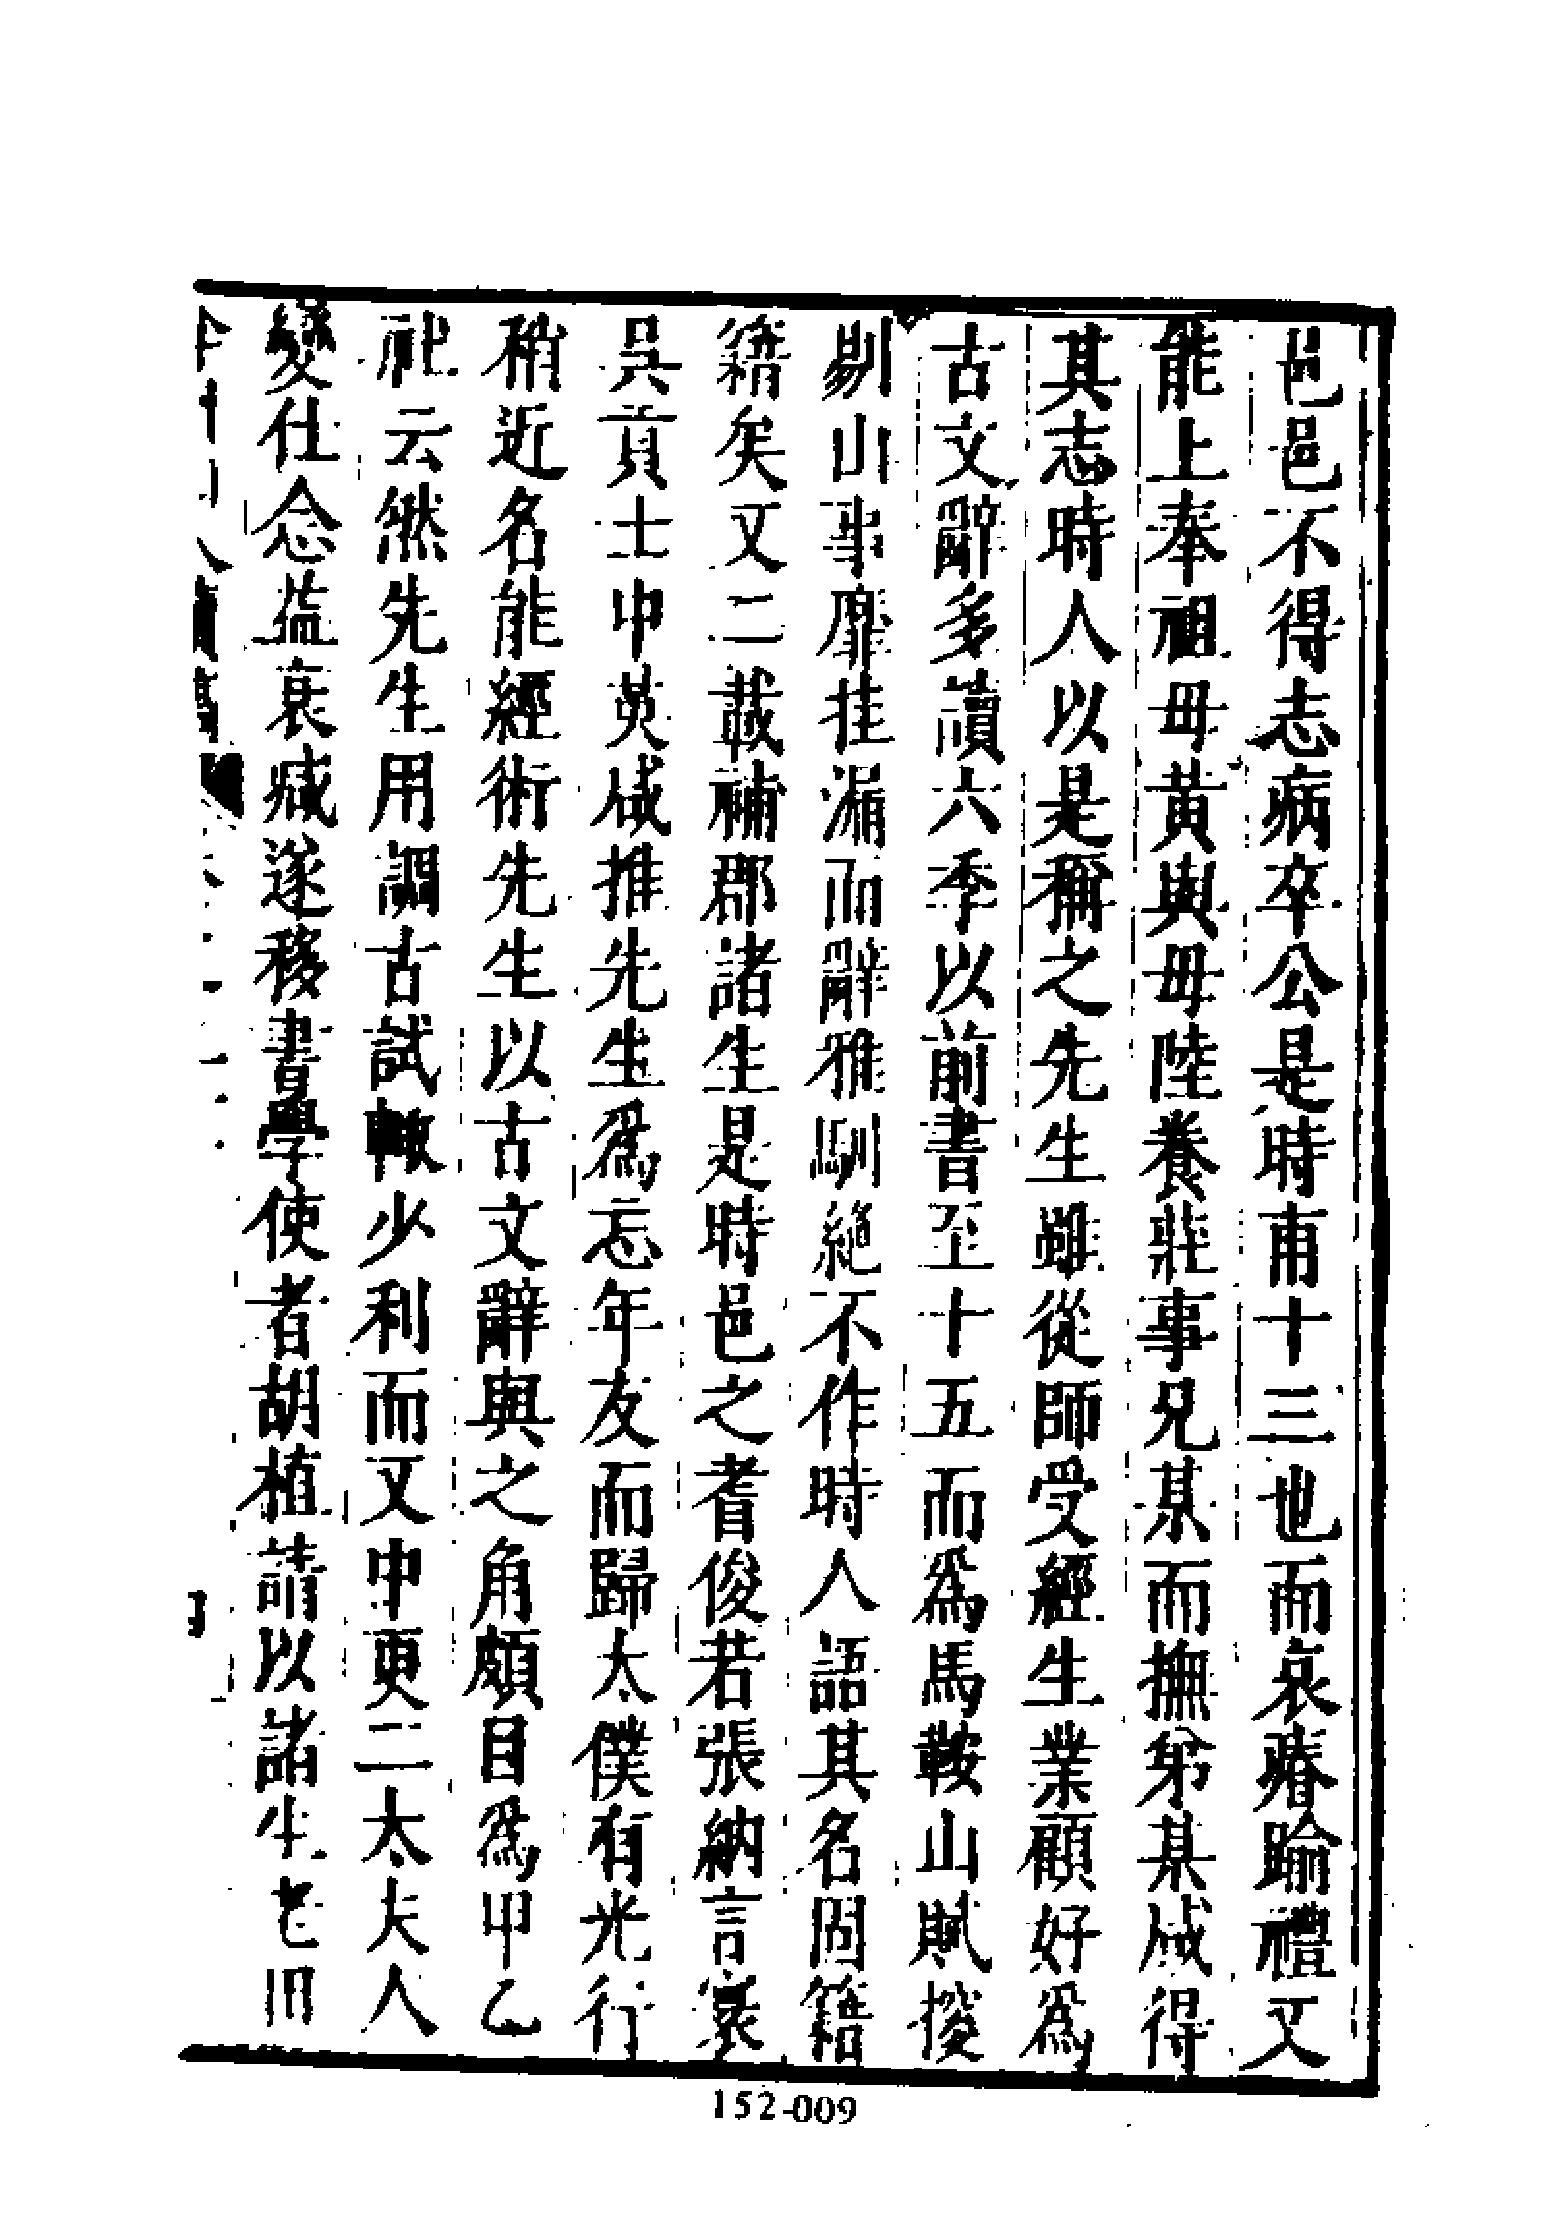 邑邑不得志病卒公是時甫十三也而哀瘠踰禮又
能上奉祖母黃與母陸養莊事兄某而撫弟某咸得
其志時人以是稱之先生雖從師受經生業顧好為
古文辭多讀六季以前書至十五而為馬鞍山賦㨷
剔山事靡挂漏而辭雅馴絕不作時人語其名固籍
籍矣又二載補郡諸生是時邑之耆俊若張納言寰
吳貢士中英咸推先生為忘年友而歸太僕有光行
稍近名能經術先生以古文辭與之角頗目為甲乙
社云然先生用調古試輙少利而又中更二太夫人
變仕念益衰臧遂移書學使者胡植請以諸生老田
152-009